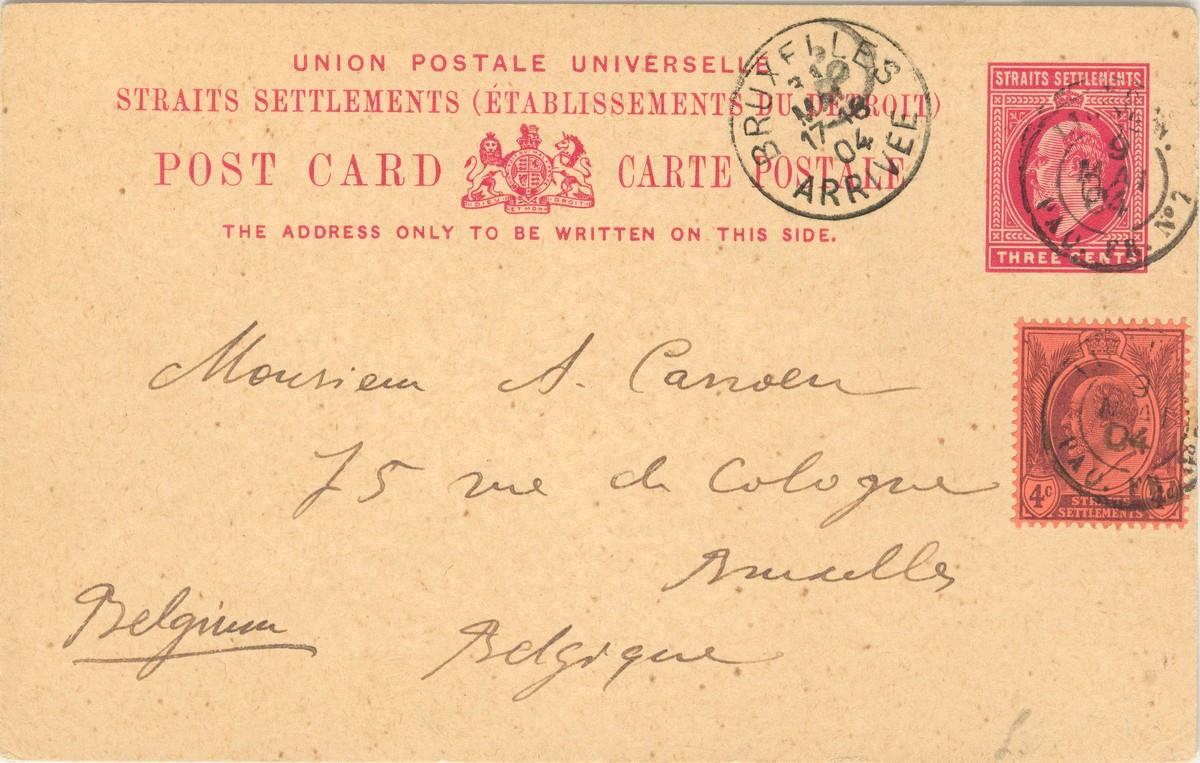 UNION POSTALE UNIVERSELLE
STRAITS SETTLEMENTS (ÉTABLISSEMENTS DU DÉTROIT)
POST CARD CARTE POSTALE
DIEU ET MON DROIT
THE ADDRESS ONLY TO BE WRITTEN ON THIS SIDE.
BRUXELLES
17-18
04
ARRIVÉE
STRAITS SETTLEMENTS
THREE CENTS
9
MA
04
PAQ. FR. No 7
Monsieur A.
75 rue de Cologne
Bruxelles
Belgium Belgique
4c STRAITS SETTLEMENTS 4c
04